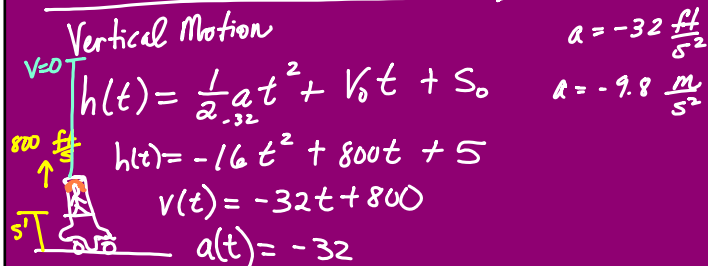 Vertical Motion
a = -32 ft/s²
V=0
h(t) = 1/2 at² + V₀t + S₀
-32
a = -9.8 m/s²
800 ft/s
h(t) = -16t² + 800t + 5
v(t) = -32t + 800
5'
a(t) = -32